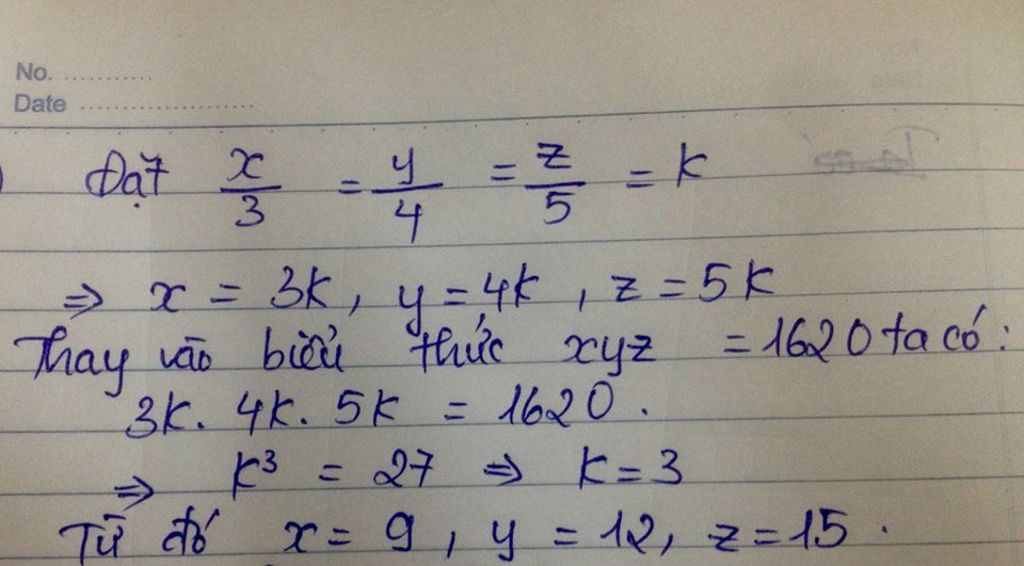 No. ............
Date ......................
Đặt x/3 = y/4 = z/5 = k
⇒ x = 3k, y = 4k, z = 5k
Thay vào biểu thức xyz = 1620 ta có:
3k. 4k. 5k = 1620.
⇒ k³ = 27 ⇒ k = 3
Từ đó x = 9, y = 12, z = 15.